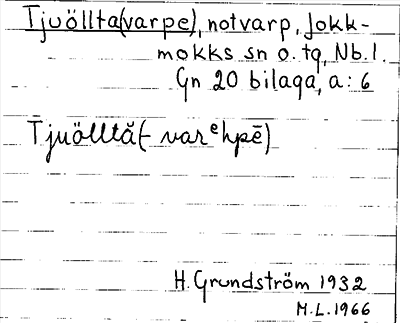 Tjuöllta(varpe), notvarp, Jokk-
mokks sn o. tg, Nb. l.
Gn 20 bilaga, a: 6
Tjuölltă(- varᵉhpē)
H. Grundström 1932
M.L. 1966